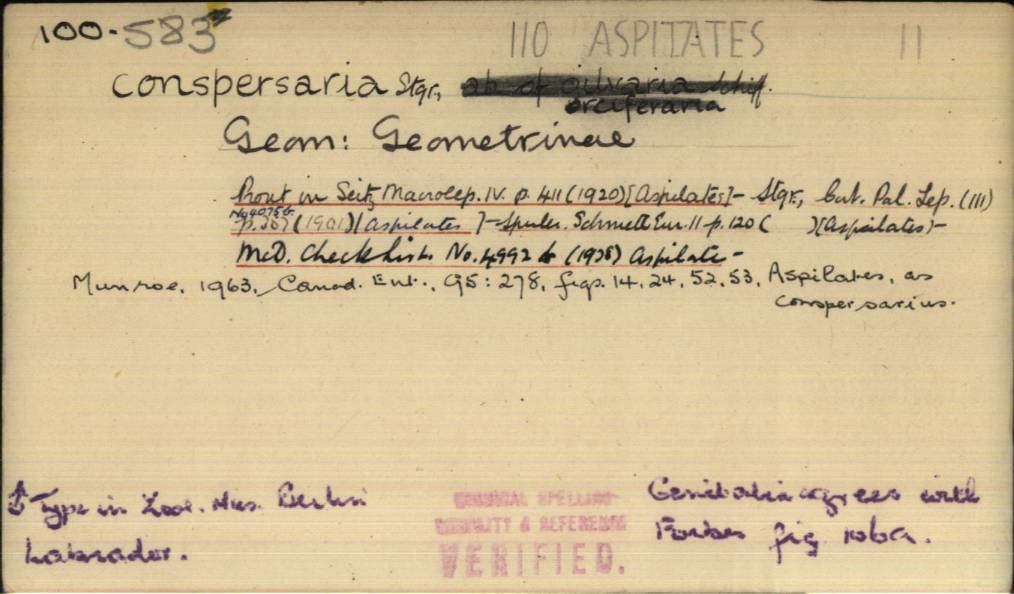 100-583 110 ASPITATES 11
conspersaria Stgr, ab of gilvaria Schiff.
orciferaria
Geom: Geometrinae
Prout in Seitz Macrolep. IV. p. 411 (1920) [Aspilates] - Stgr, Cat. Pal. Lep. (III)
No 4075b
p. 307 (1901) [Aspilates] - Spuler. Schmett Eur. II p. 120 ( ) [Aspilates] -
McD. Check List. No. 4992 (1938) Aspilate -
Munroe, 1963, Canad. Ent., 95: 278, figs. 14, 24, 52, 53, Aspilates, as
conspersarius.
♂ Type in Zool. Mus. Berlin
Labrador.
ORIGINAL SPELLING
HOMONYMITY & REFERENCE
VERIFIED.
Genitalia agrees with
Forbes fig